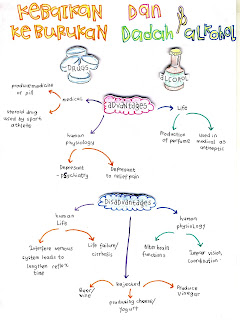 KEBAIKAN DAN
KEBURUKAN Dadah & alkohol
DRUGS
ALCOHOL
medical
advantages
Life
steroid drug
used by sport
athlete
human
physiology
Production
of perfume
Used in
medical as
antiseptic
Depressant
to relief pain
Disadvantages
human
Life
human
physiology
Interfere nervous
system leads to
lengthen reflex
time
Life failure/
cirrhosis
functions
Impair vision,
coordination
Beer/
wine
Rejected
Produce
vinegar
producing cheese/
yogurt